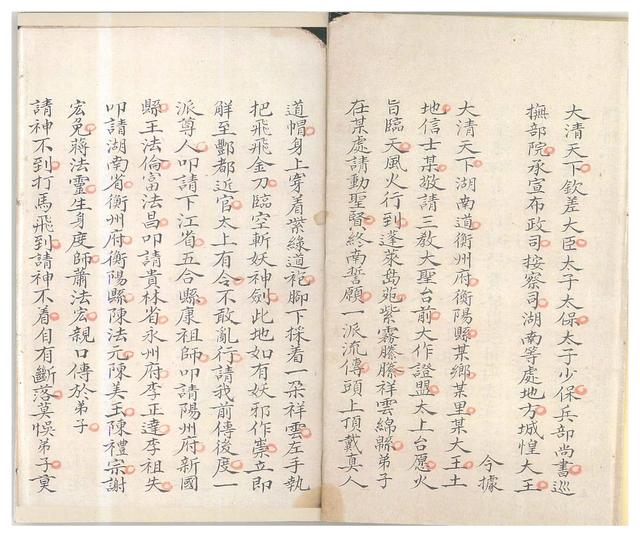 大清天下欽差大臣太子太保太子少保兵部尚書巡
撫部院承宣布政司按察司湖南等處地方城惶大王
今據
大清天下湖南道衡州府衡陽縣某鄉某里某大王土
地信士某敬請三教大聖台前大作證盟太上台愿火
旨臨天風火行到蓬萊島苑紫霧騰騰祥雲綿縣弟子
在某處請動聖督終南誓願一派流傳頭上頂戴真人
道帽身上穿着紫綠道袍脚下採着一朶祥雲左手執
把飛飛金刀臨空斬妖神劍此地如有妖邪作祟立即
觧至酆都近官太上有令不敢亂行請我前傳後度一
派尊人叩請下江省五合縣康祖師叩請陽州府新國
縣王法倫富法昌叩請貴林省永州府李正達李祖失
叩請湖南省衡州府衡陽縣陳法元陳美王陳禮宗謝
宏免將法靈生身度師蕭法宏親口傳於弟子
請神不到打馬飛到請神不着自有斷落莫悞弟子